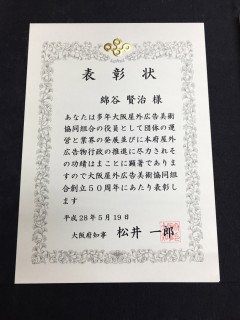 表彰状
綿谷 賢治 様
あなたは多年大阪屋外広告美術
協同組合の役員として団体の運
営と業界の発展並びに本府屋外
広告物行政の推進に尽力されそ
の功績はまことに顕著でありま
すので大阪屋外広告美術協同組
合創立50周年にあたり表彰しま
す
平成28年5月19日
大阪府知事 松井 一郎